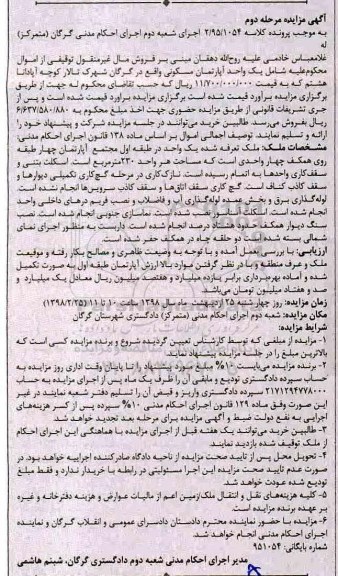 آگهی مزایده مرحله دوم
به موجب پرونده کلاسه ۲/۹۵/۱۰۵۴ اجرای شعبه دوم اجرای احکام مدنی گرگان (متمرکز) له
غلامعباس خادمی علیه روح‌الله دهقان مبنی بر فروش مال غیرمنقول توقیفی از اموال
محکوم‌علیه شامل یک واحد آپارتمان مسکونی واقع در گرگان شهرک تالار کوچه آپادانا
هشتم که به قیمت ۱۱/۷۰۰/۰۰۰/۰۰۰ ریال که حسب تقاضای محکوم له جهت از طریق
برگزاری مزایده برآورد قیمت شده است برگزاری مزایده برآورد قیمت شده است و پس از
جری تشریفات قانونی از طریق مزایده حضوری جهت اخذ مبلغ محکوم به ۶/۶۳۷/۵۸۰/۸۸۰
ریال بفروش می‌رسد طالبین خرید می‌توانند در جلسه مزایده شرکت و پیشنهاد خود را
ارائه و تسلیم نمایند. توصیف اجمالی اموال بر اساس ماده ۱۳۸ قانون اجرای احکام مدنی:
مشخصات ملک: ملک تعرفه شده یک واحد در طبقه اول مجتمع آپارتمان چهار طبقه
روی همکف چهار واحدی است که مساحت هر واحد ۲۳۰ مترمربع است. اسکلت بتنی و
سقف‌کاری واحدها به اتمام رسیده است. نازک‌کاری در مرحله گچ‌کاری تکمیلی دیوارها و
سقف کاذب کناف است. گچ کاری سقف اتاق‌ها و سقف کاذب سرویس‌ها انجام نشده است.
لوله‌گذاری برق و بخش عمده لوله‌گذاری آب و فاضلاب و نصب فریم درهای داخلی واحد
انجام شده است. آسانسور نصب شده است. نماسازی جنوبی انجام شده است. نصب
سنگ دیوار همکف هشتاد درصد انجام شده است. داربست به منظور اجرای نمای
شمالی بسته شده است. دو حلقه چاه در همکف حفر شده است.
ارزیابی: با بررسی بعمل آمده و با توجه به وضعیت ظاهری و مصالح بکار رفته و موقعیت
ملک و عرف منطقه و با در نظر گرفتن موارد بالا ارزش آپارتمان طبقه اول به صورت تکمیل
شده و آماده بهره‌برداری برابر یازده میلیارد و هفتصد میلیون ریال معادل یک میلیارد و
صد و هفتاد میلیون تومان می‌باشد.
زمان مزایده: روز چهارشنبه ۲۵ اردیبهشت ماه سال ۱۳۹۸ ساعت ۱۰ تا ۱۱ (۱۳۹۸/۲/۲۵)
مکان مزایده: شعبه دوم اجرای احکام مدنی (متمرکز) دادگستری شهرستان گرگان
شرایط مزایده:
۱- مزایده از مبلغی که توسط کارشناس تعیین گردیده شروع و برنده مزایده کسی است که
بالاترین مبلغ را در جلسه مزایده پیشنهاد نماید.
۲- برنده مزایده می‌بایست ۱۰% مبلغ مورد پیشنهاد را تا پایان وقت اداری روز مزایده به
حساب سپرده دادگستری تودیع و مابقی آن را ظرف یک ماه پس از اجرای مزایده به حساب
۲۱۷۱۲۹۴۷۷۸۰۰۰ سپرده دادگستری واریز و قبض آن را تسلیم دفتر شعبه نمایند در غیر
این صورت وفق ماده ۱۲۹ قانون اجرای احکام مدنی ۱۰% سپرده پس از کسر هزینه‌های
اجرایی به نفع دولت ضبط و آگهی مزایده برای مرحله بعد تجدید خواهد شد.
۳- طالبین خرید می‌توانند یک هفته قبل از اجرای مزایده با هماهنگی این اجرای احکام
از ملک توقیف شده بازدید نمایند.
۴- تحویل محل پس از تایید صحت مزایده از ناحیه دادگاه صادرکننده اجراییه خواهد بود. در
صورت عدم تایید صحت مزایده این اجرا مسئولیتی در رابطه با خریدار ندارد و فقط مبلغ
تودیع شده عودت خواهد شد.
۵- کلیه هزینه‌های نقل و انتقال ملک/زمین اعم از مالیات عوارض و هزینه دفترخانه و غیره
بر عهده برنده مزایده است.
۶- مزایده با حضور نماینده محترم دادستان دادسرای عمومی و انقلاب گرگان و نماینده
اجرای احکام مدنی انجام خواهد شد.
شماره بایگانی: ۹۵۱۰۵۴
مدیر اجرای احکام مدنی شعبه دوم دادگستری گرگان، شبنم هاشمی